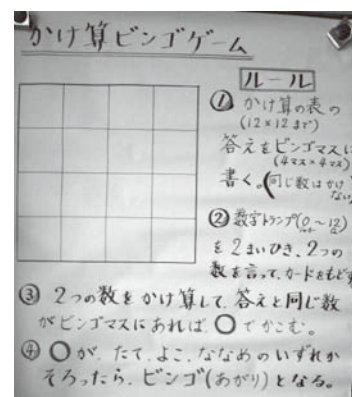 かけ算ビンゴゲーム
ルール
① かけ算の表の
(12×12まで)
答えをビンゴマスに
(4マス×4マス)
書く。(同じ数はかけ
ない)
② 数字トランプ(0~12)
を2まいひき、2つの
数を言って、カードをもどす
③ 2つの数をかけ算して、答えと同じ数
がビンゴマスにあれば、○でかこむ。
④ ○が、たて、よこ、ななめのいずれか
そろったら、ビンゴ(あがり)となる。